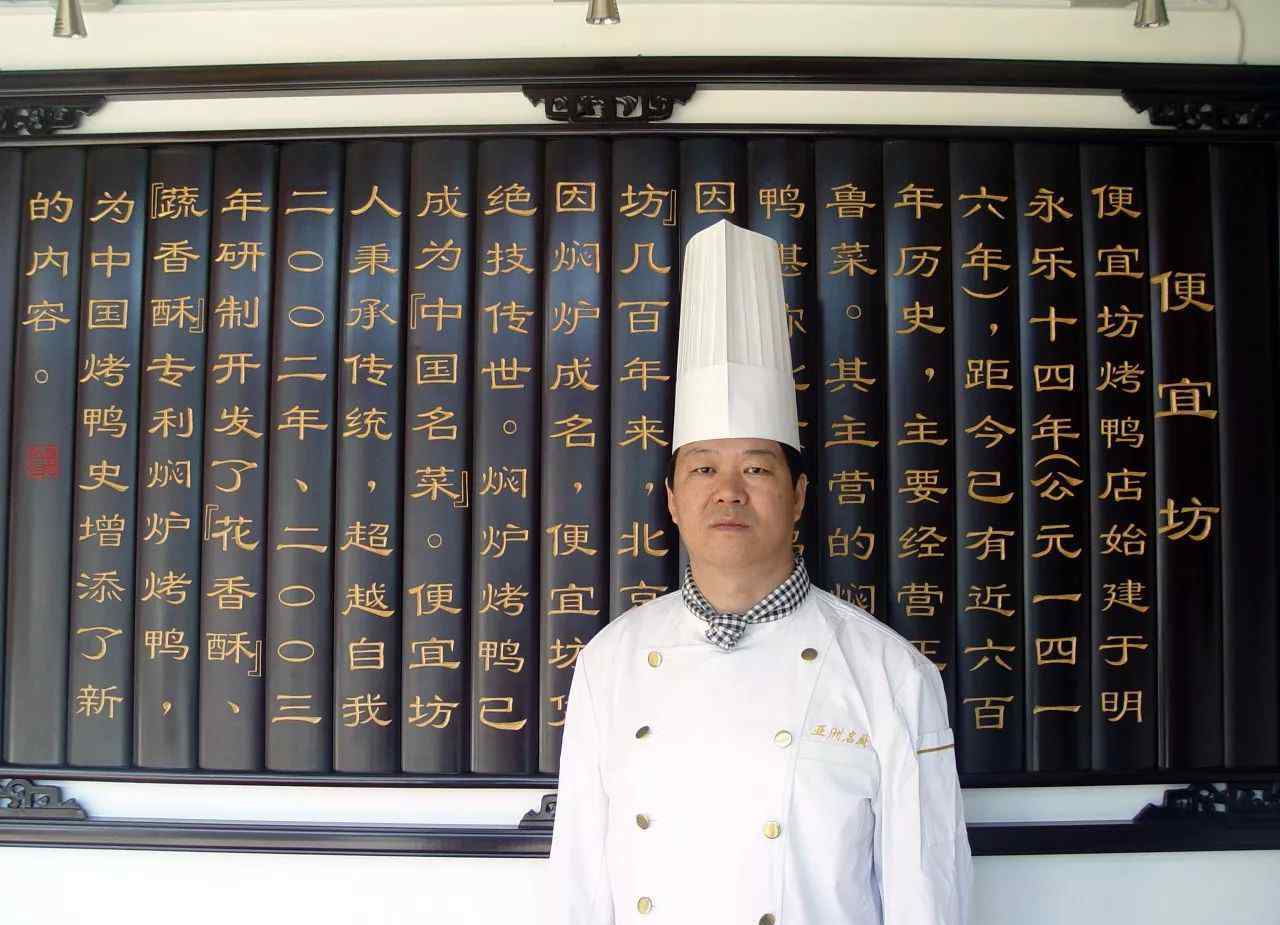 便宜坊
便宜坊烤鸭店始建于明
永乐十四年(公元一四一
六年),距今已有近六百
年历史,主要经营正
鲁菜。其主营的焖
鸭堪称
因
坊』几百年来,北京
因焖炉成名,便宜坊
绝技传世。焖炉烤鸭已
成为『中国名菜』。便宜坊
人秉承传统,超越自我
二〇〇二年、二〇〇三
年研制开发了『花香酥』、
『蔬香酥』专利焖炉烤鸭,
为中国烤鸭史增添了新
的内容。
亚洲名厨